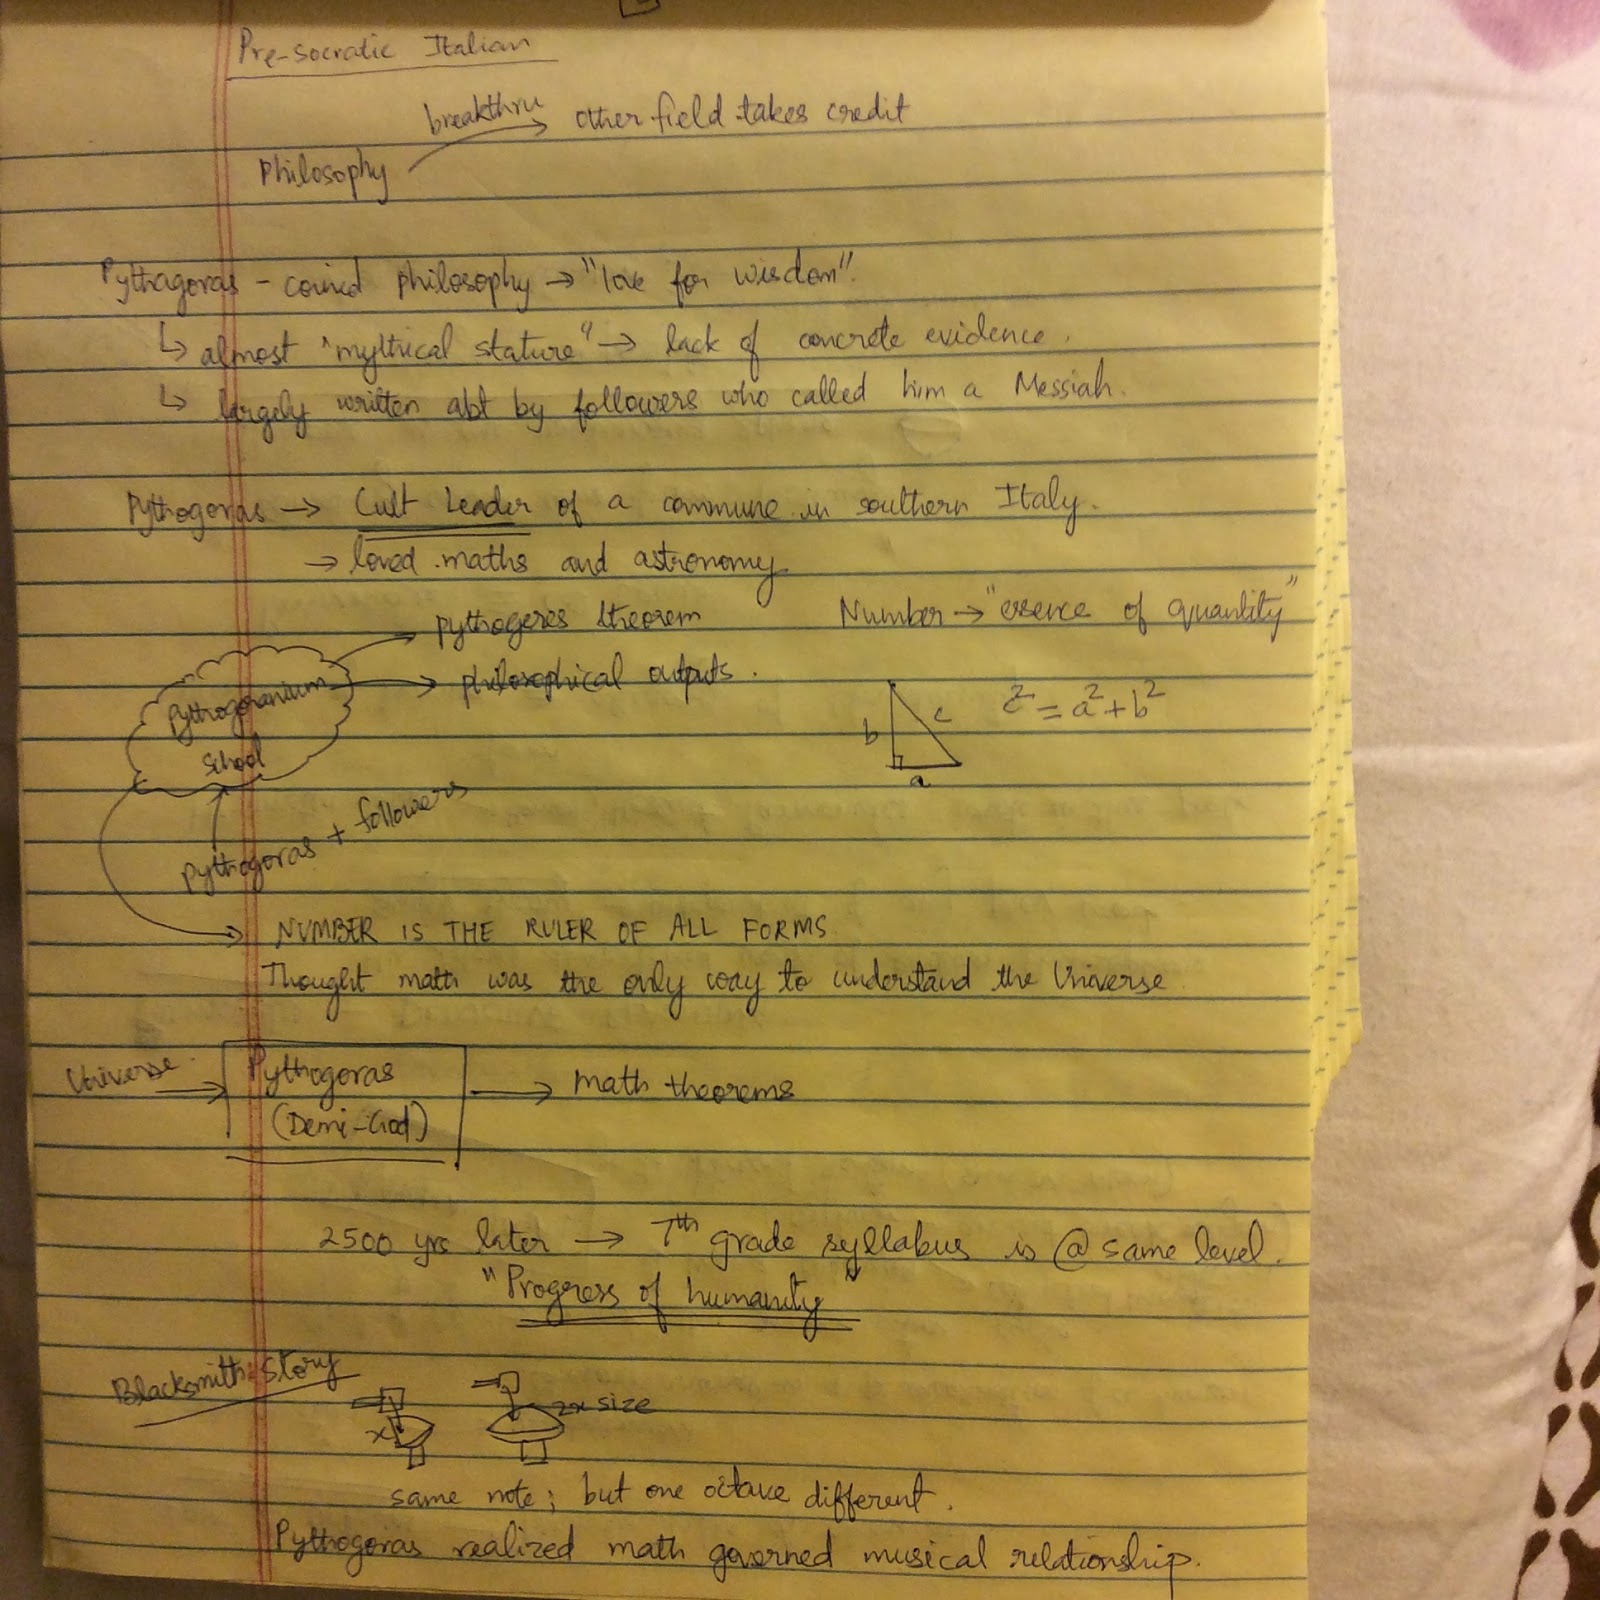 Pre-socratic Italian
Philosophy breakthru → other field takes credit
Pythagoras - coined philosophy → "love for wisdom".
↳ almost "mythical stature" → lack of concrete evidence.
↳ largely written abt by followers who called him a Messiah.
Pythogoras → Cult Leader of a commune in southern Italy.
→ loved maths and astronomy
pythogeres theorem
Number → "essence of quantity"
→ philosophical outputs.
Pythogoranium
school
b c a
c² = a² + b²
Pythogoras + followers
→ NUMBER IS THE RULER OF ALL FORMS
Thought math was the only way to understand the Universe
Universe → Pythogoras → math theorems
(Demi-God)
2500 yrs later → 7th grade syllabus is @ same level.
"Progress of humanity"
Blacksmith story
x 2x size
same note; but one octave different.
Pythogoras realized math governed musical relationship.